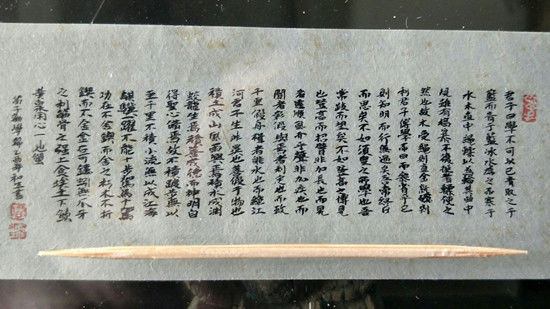 君子曰學不可以已青取之于
藍而青于藍冰水為之而寒于
水木直中繩輮以為輪其曲中
規雖有槁暴不復挺者輮使之
然也故木受繩則直金就礪則
利君子博學而日參省乎己
則知明而行無過矣吾嘗終日
而思矣不如須臾之所學也吾
嘗跂而望矣不如登高之博見
也登高而招臂非加長也而見
者遠順風而呼聲非加疾也而
聞者彰假輿馬者非利足也而致
千里假舟楫者非能水也而絕江
河君子生非異也善假于物也
積土成山風雨興焉積水成淵
蛟龍生焉積善成德而神明自
得聖心備焉故不積蹞步無以
至千里不積小流無以成江海
騏驥一躍不能十步駑馬十駕
功在不舍鍥而舍之朽木不折
鍥而不舍金石可鏤蚓無爪牙
之利筋骨之強上食埃土下飲
黃泉用心一也蟹
荀子勸學節